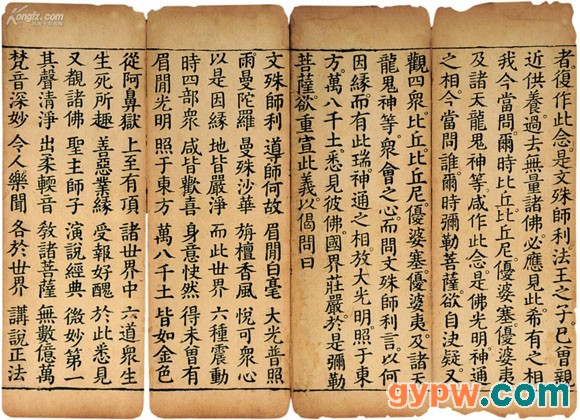 者。復作此念。是文殊師利法王之子。已曾親
近供養過去無量諸佛。必應見此希有之相。
我今當問。爾時比丘比丘尼。優婆塞優婆夷。
及諸天龍鬼神等。咸作此念。是佛光明神通
之相。今當問誰。爾時彌勒菩薩。欲自決疑。又
觀四衆。比丘比丘尼。優婆塞優婆夷。及諸天
龍鬼神等。衆會之心。而問文殊師利言。以何
因緣。而有此瑞神通之相。放大光明。照于東
方。萬八千土。悉見彼佛國界莊嚴。於是彌勒
菩薩。欲重宣此義。以偈問曰
文殊師利 導師何故 眉間白毫 大光普照
雨曼陀羅 曼殊沙華 栴檀香風 悅可衆心
以是因緣 地皆嚴淨 而此世界 六種震動
時四部衆 咸皆歡喜 身意快然 得未曾有
眉間光明 照于東方 萬八千土 皆如金色
從阿鼻獄 上至有頂 諸世界中 六道衆生
生死所趣 善惡業緣 受報好醜 於此悉見
又覩諸佛 聖主師子 演說經典 微妙第一
其聲清淨 出柔輭音 教諸菩薩 無數億萬
梵音深妙 令人樂聞 各於世界 講說正法
Kongfz.com
gypw.com